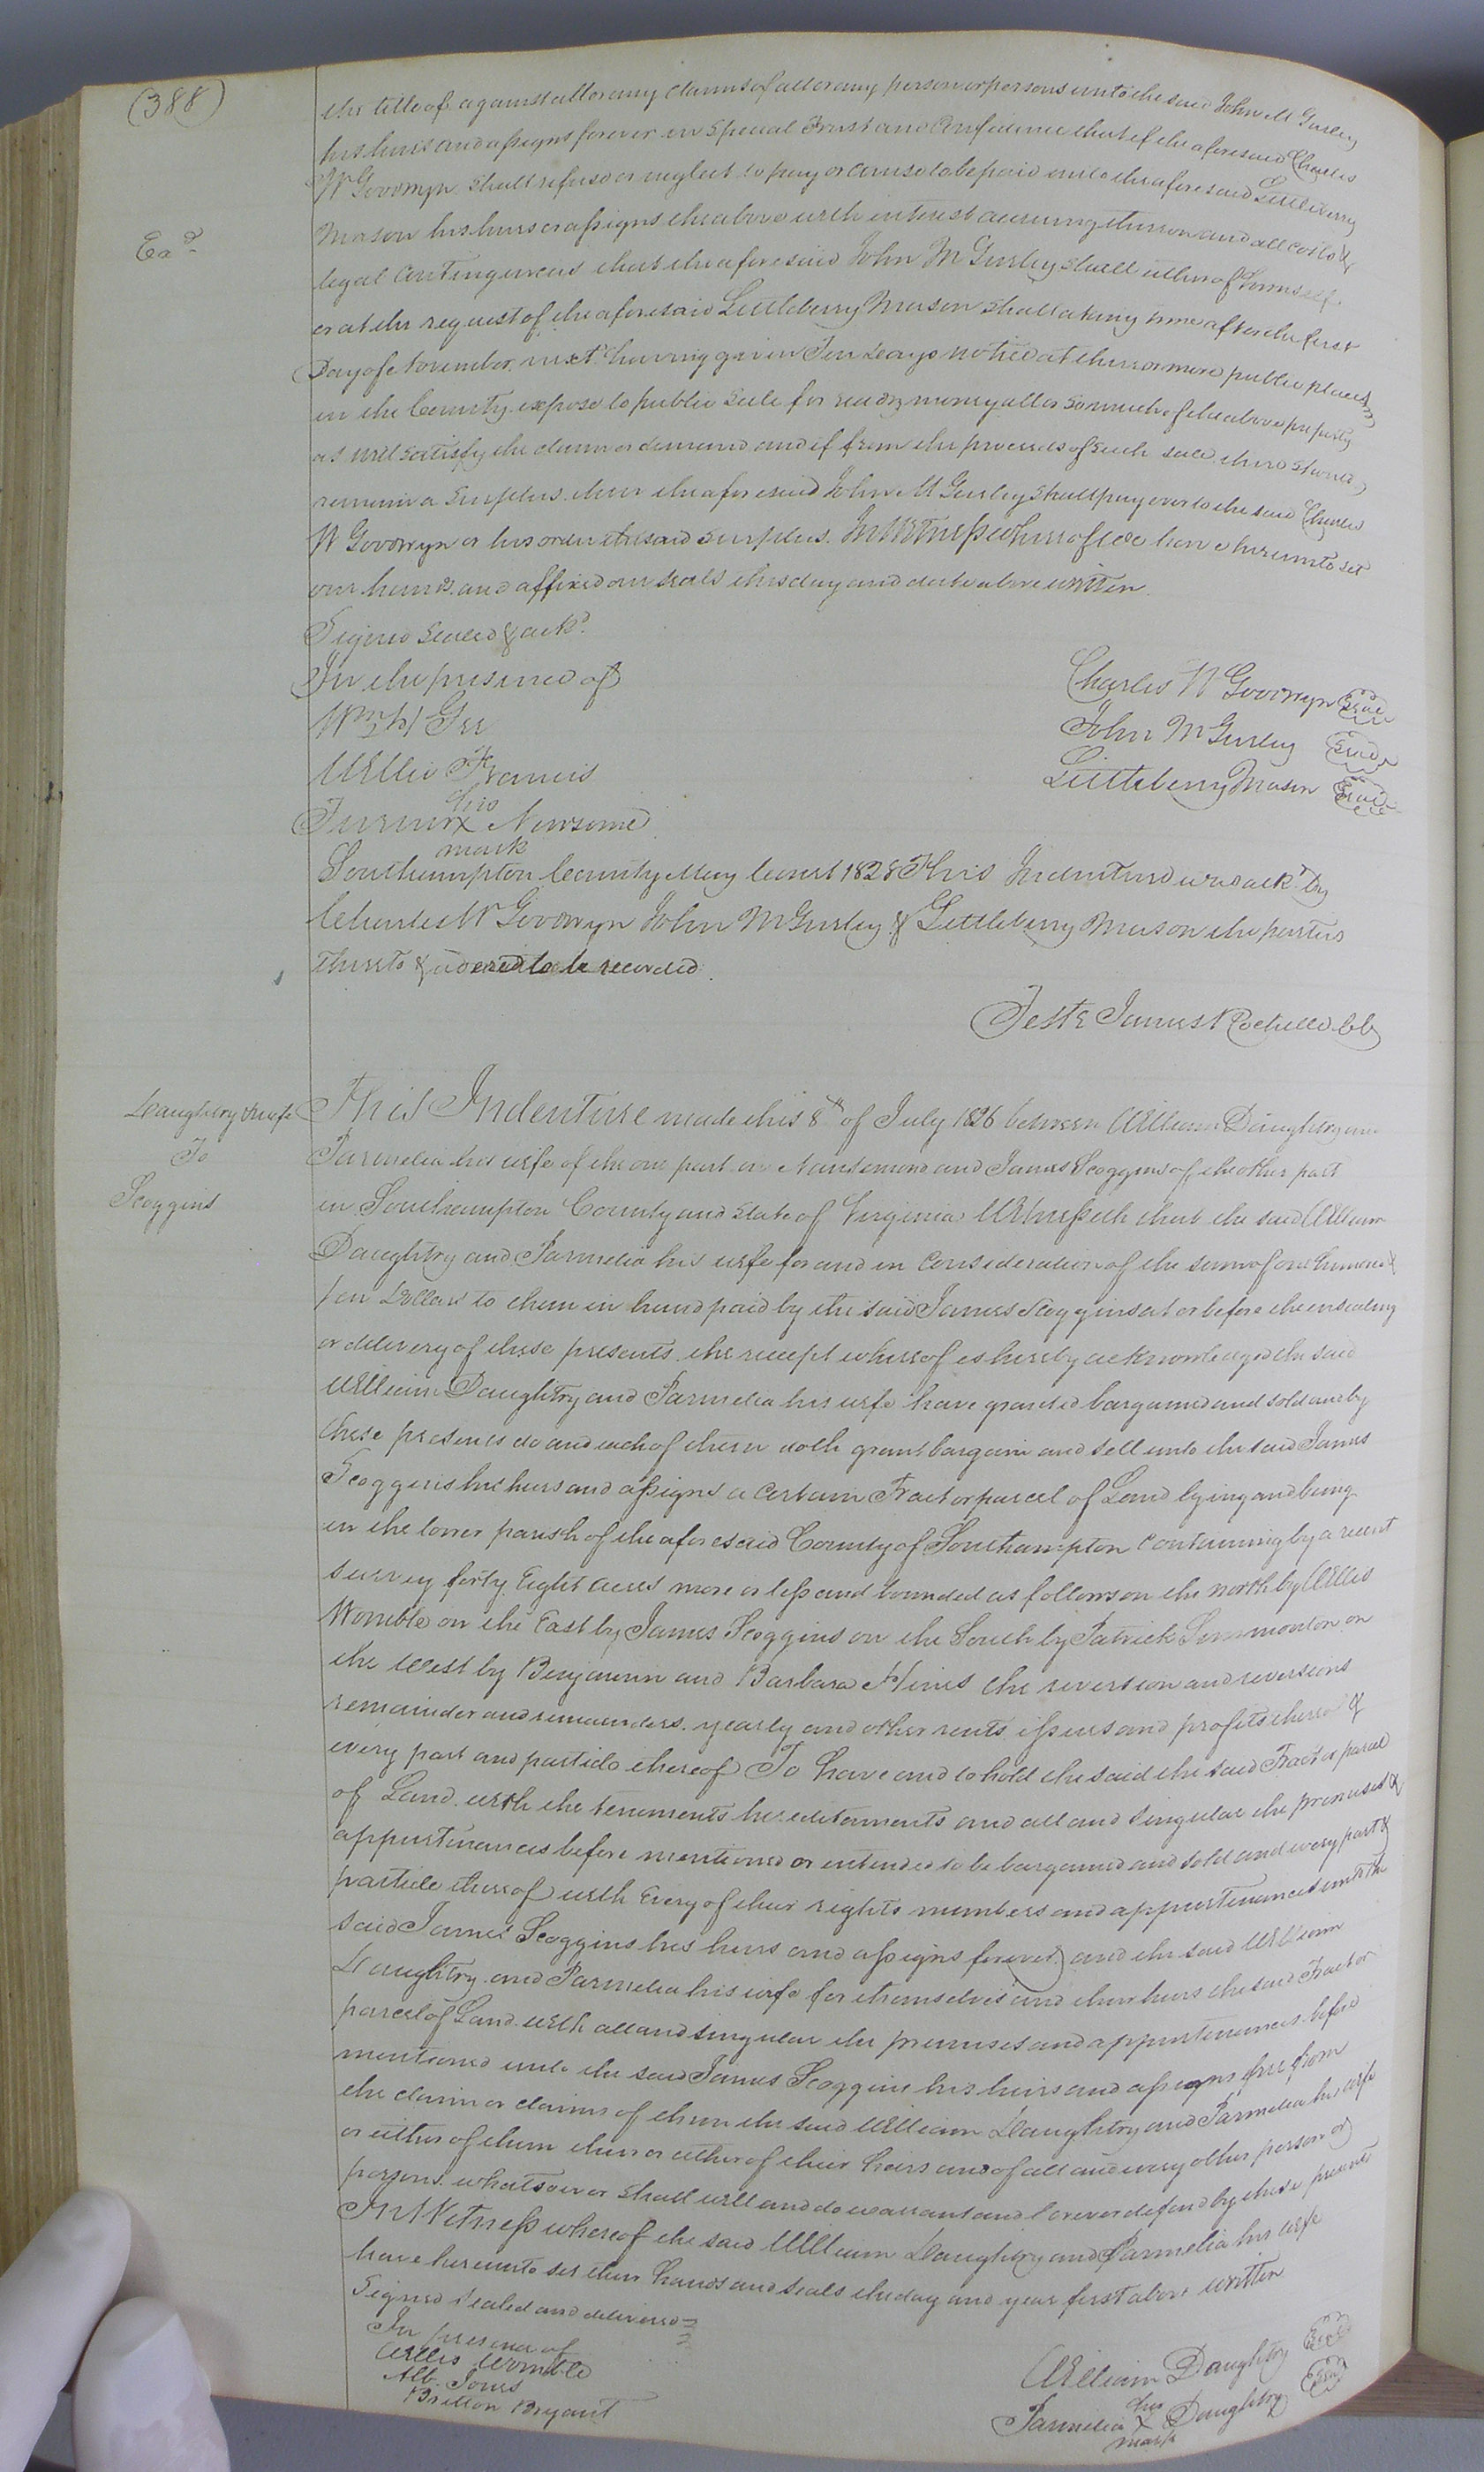 (388)
the title of against all or any claims of all or any person or persons unto the said John M Gurley
his heirs and assigns forever in Special Trust and Confidence that if the aforesaid Charles
W Goodwyn shall refuse or neglect to pay or cause to be paid unto the aforesaid Littleberry
Mason his heirs or assigns the above with interest accruing thereon and all costs &
Exd
legal Contingences that the aforesaid John M Gurley shall either of himself
or at the request of the aforesaid Littleberry Mason shall at any time after the first
Day of November next having given Ten days notice at three or more public places
in the County expose to public Sale for ready money all or so much of the above property
as will satisfy the claim or demand and if from the proceeds of such sale there should
remain a Surplus then the aforesaid John M Gurley shall pay over to the said Charles
W Goodwyn or his order the said surplus. In Witness whereof we have hereunto set
our hands and affixed our seals this day and date above written.
Signed Sealed & ackd.
In the presence of
Charles W Goodwyn Seal
Wm H Gee
John M Gurley Seal
Willie Francis
Littleberry Mason Seal
his
Turner X Newsome
mark
Southampton County May Court 1828 This Indenture was ackd by
Charles W Goodwyn John M Gurley & Littleberry Mason the parties
thereto & ordered to be recorded.
Teste James Rochelle CC
Daughtry & wife
To
Scoggins
This Indenture made this 8th of July 1826 between William Daughtry and
Parmelia his wife of the one part in Nansemond and James Scoggins of the other part
in Southampton County and State of Virginia Witnesseth that the said William
Daughtry and Parmelia his wife for and in Consideration of the sum of one hundred &
ten Dollars to them in hand paid by the said James Scoggins at or before the ensealing
or delivery of these presents the receipt whereof is hereby acknowledged the said
William Daughtry and Parmelia his wife have granted bargained and sold and by
these presents do and each of them doth grant bargain and sell unto the said James
Scoggins his heirs and assigns a certain Tract or parcel of Land lying and being
in the lower parish of the aforesaid County of Southampton Containing by a recent
survey forty Eight acres more or less and bounded as follows on the north by Willis
Womble on the East by James Scoggins on the South by Patrick on
the West by Benjamin and Barbara Hines the reversion and reversions
remainder and remainders yearly and other rents issues and profits thereof &
every part and particle thereof To have and to hold the said the said Tract or parcel
of Land with the tenements hereditaments and all and singular the premises &
appurtenances before mentioned or intended to be bargained and sold and every part &
particle thereof with Every of their rights members and appurtenances unto the
said James Scoggins his heirs and assigns forever and the said William
Daughtry and Parmelia his wife for themselves and their heirs the said Tract or
parcel of Land with all and singular the premises and appurtenances before
mentioned unto the said James Scoggins his heirs and assigns free from
the claim or claims of them the said William Daughtry and Parmelia his wife
or either of them their or either of their heirs and of all and every other person or
persons whatsoever shall will and do warrant and forever defend by these presents
In Witness whereof the said William Daughtry and Parmelia his wife
have hereunto set their hands and seals the day and year first above written
Signed Sealed and delivered
In presence of
Willis Womble
Alb. Jones
Britton Bryant
William Daughtry Seal
her
Parmelia X Daughtry Seal
mark